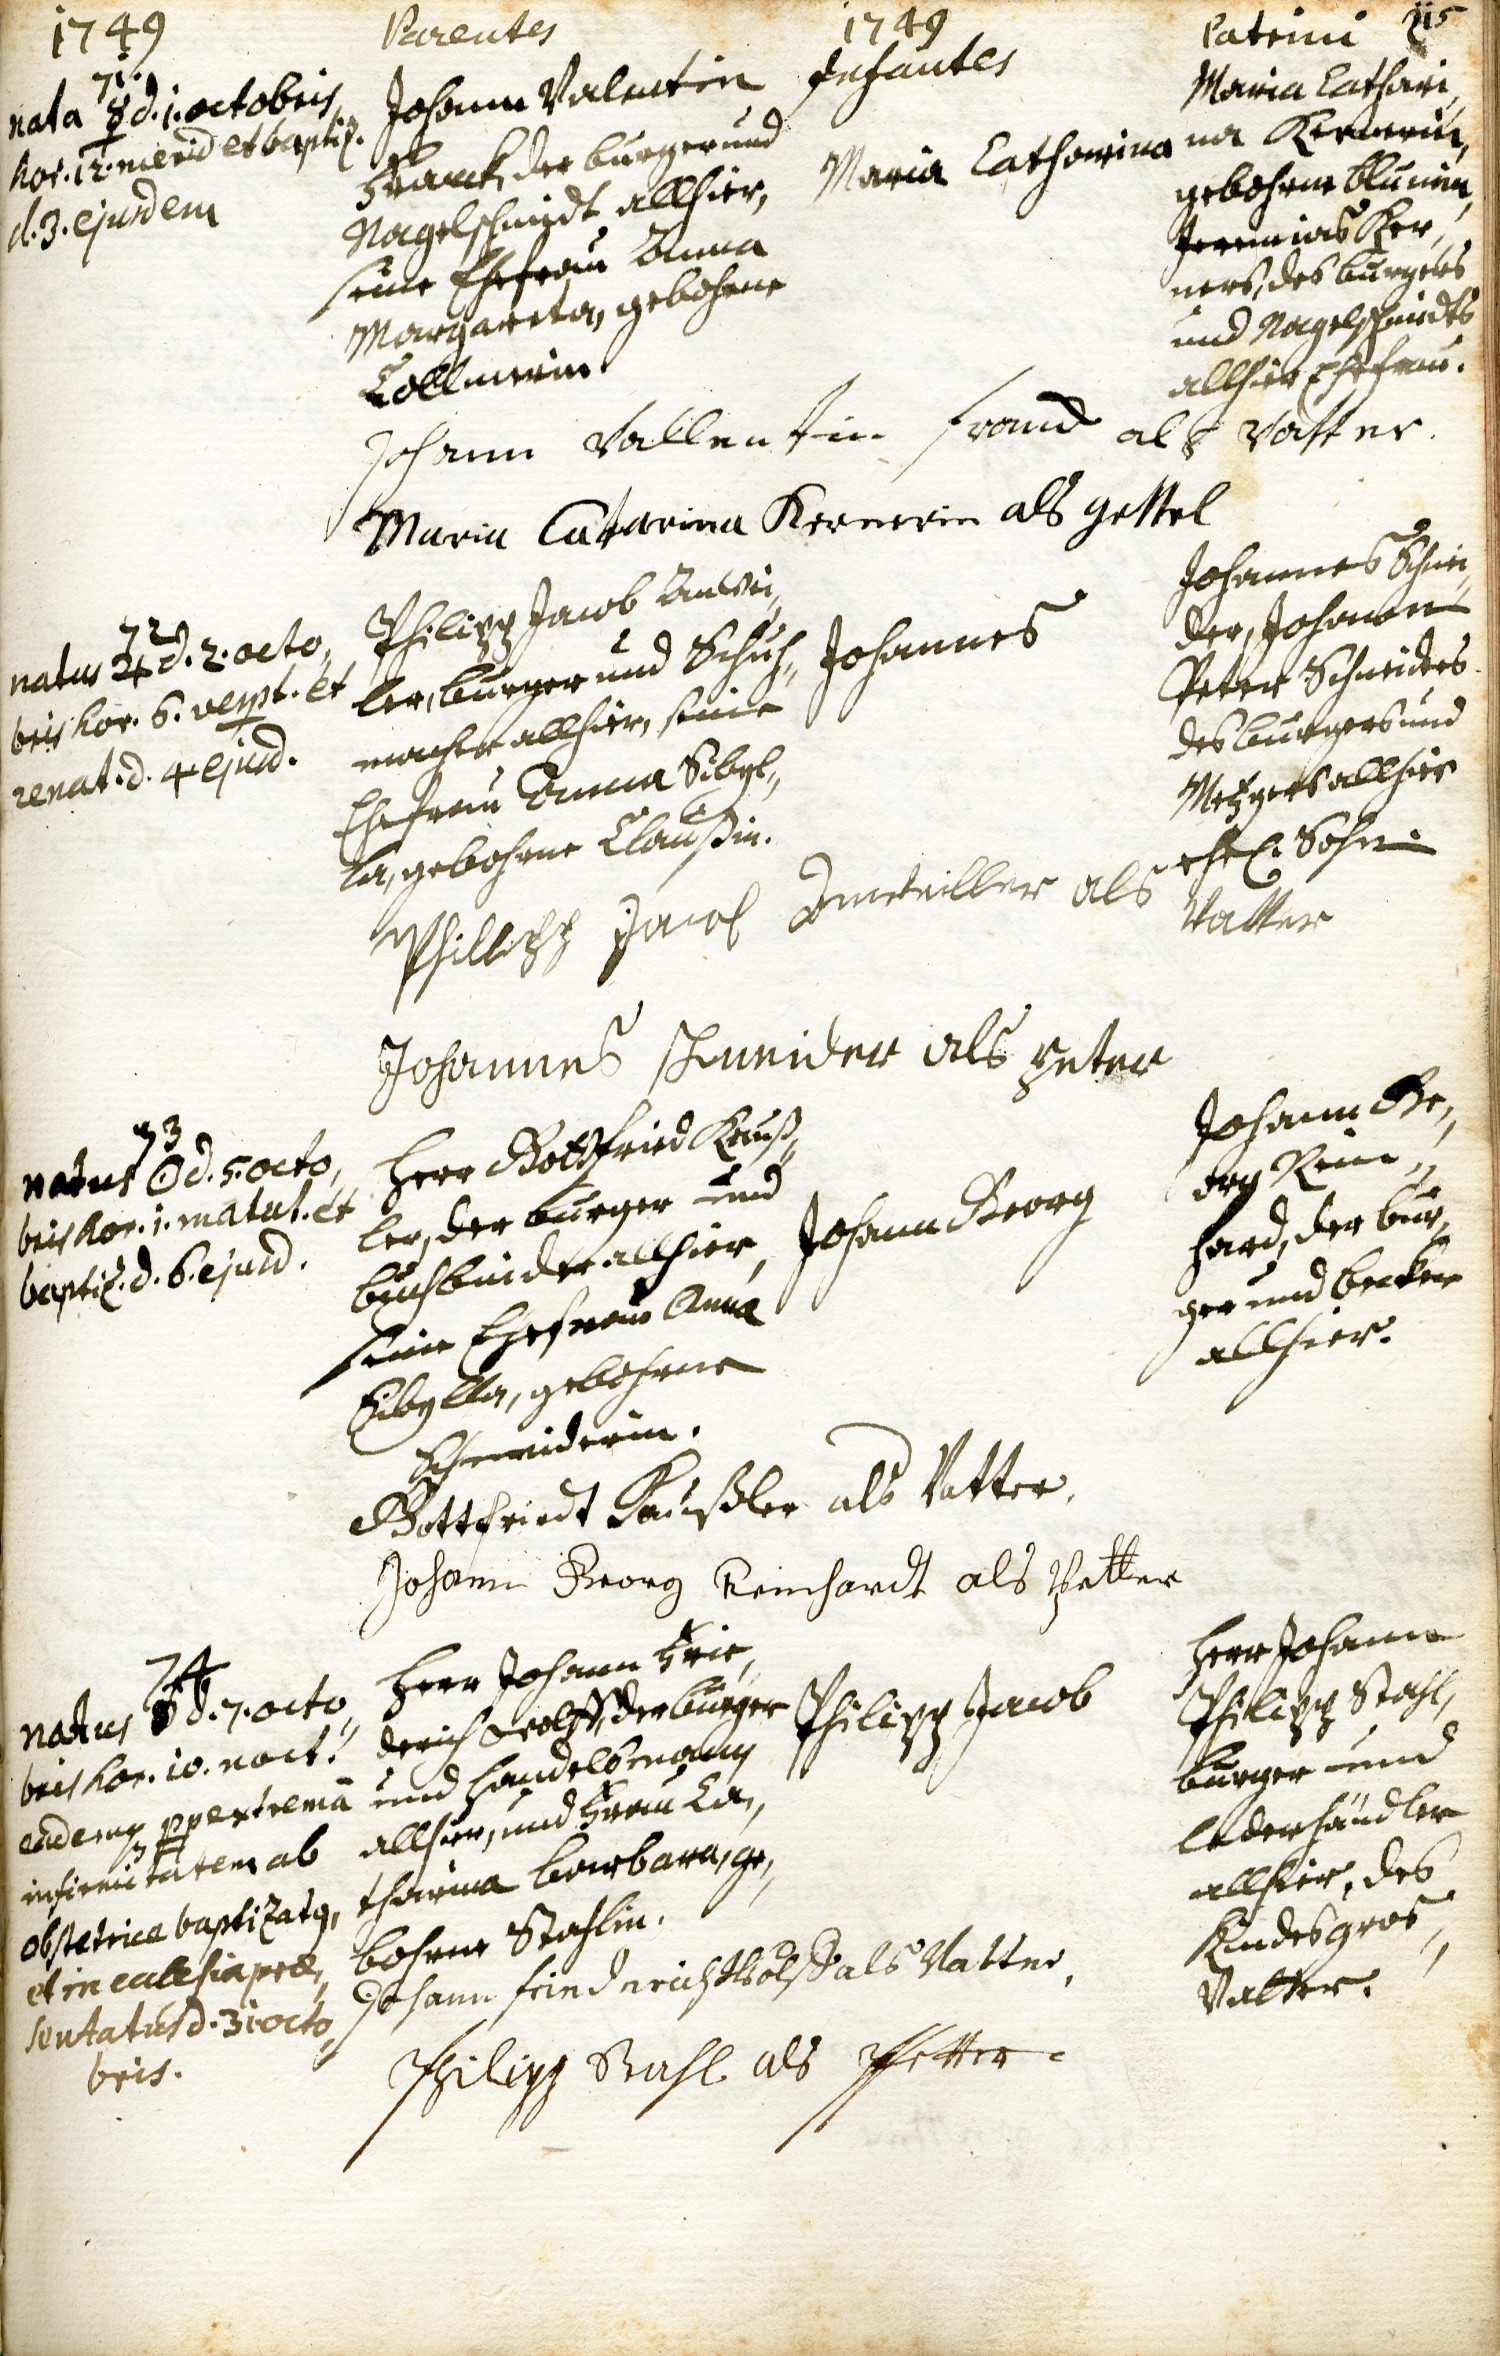 1749 Parentes 1749 Patrini 215
Infantes
71.
nata ☿ d. 1. octobris,
hor. 12. merid et baptiz.
d. 3. ejusdem
Johann Valentin
Franck, der burger und
Nagelschmidt allhier,
seine Ehefrau Anna
Margareta, gebohrne
Collmerin.
Maria Catharina
Maria Cathari„
na Kernerin,
gebohrne Blumin,
Jeremias Ker„
ners, des burgers
und Nagelschmidts
allhier Ehefrau.
Johann Vallentin Franck als Vatter.
Maria Catarina Kernerin als gettel
72
natus ♃ d. 2. octo„
bris hor. 6. vespt. et
renat. d. 4 ejusd.
Philipp Jacob Anwei„
ler, burger und Schuh„
macher allhier, seine
Ehefrau Anna Sibyl„
la, gebohrne Claußin.
Johannes
Johannes Schnei„
der, Johann
Peter Schneiders
des burgers und
Metzgers allhier
ehel. Sohn.
Phillipp Jacob Anweiller als Vatter
Johannes schneider als peter
73
natus ☉ d. 5. octo„
bris hor. 1. matut. et
baptiz. d. 6. ejusd.
Herr Gottfried Keuß„
ler, der burger und
buchbinder allhier,
seine Ehefrau Anna
Sibylla, gebohrne
Schneiderin.
Johann Georg
Johann Ge„
org Rein„
hard, der bur„
ger und becker
allhier.
Gottfriedt Käußler als Vatter.
Johann Georg Reinhardt als Petter
74
natus ♂ d. 7. octo„
bris hor. 10. noct.
eademq ppextremā
infirmitatem ab
obstetrice baptizatq,
et in ecclesia præ„
sentatus d. 31 octo„
bris.
Herr Johann Frie„
derich Wolff, der burger
und Handelsmann
allhier, und Frau Ca„
tharina barbara, ge„
bohrne Stahlin.
Philipp Jacob
Herr Johann
Philipp Stahl,
burger und
lederhändler
allhier, des
Kindes gros„
Vatter.
Johann friedrich Wolff als Vatter.
Philipp Stahl als Pfetter.